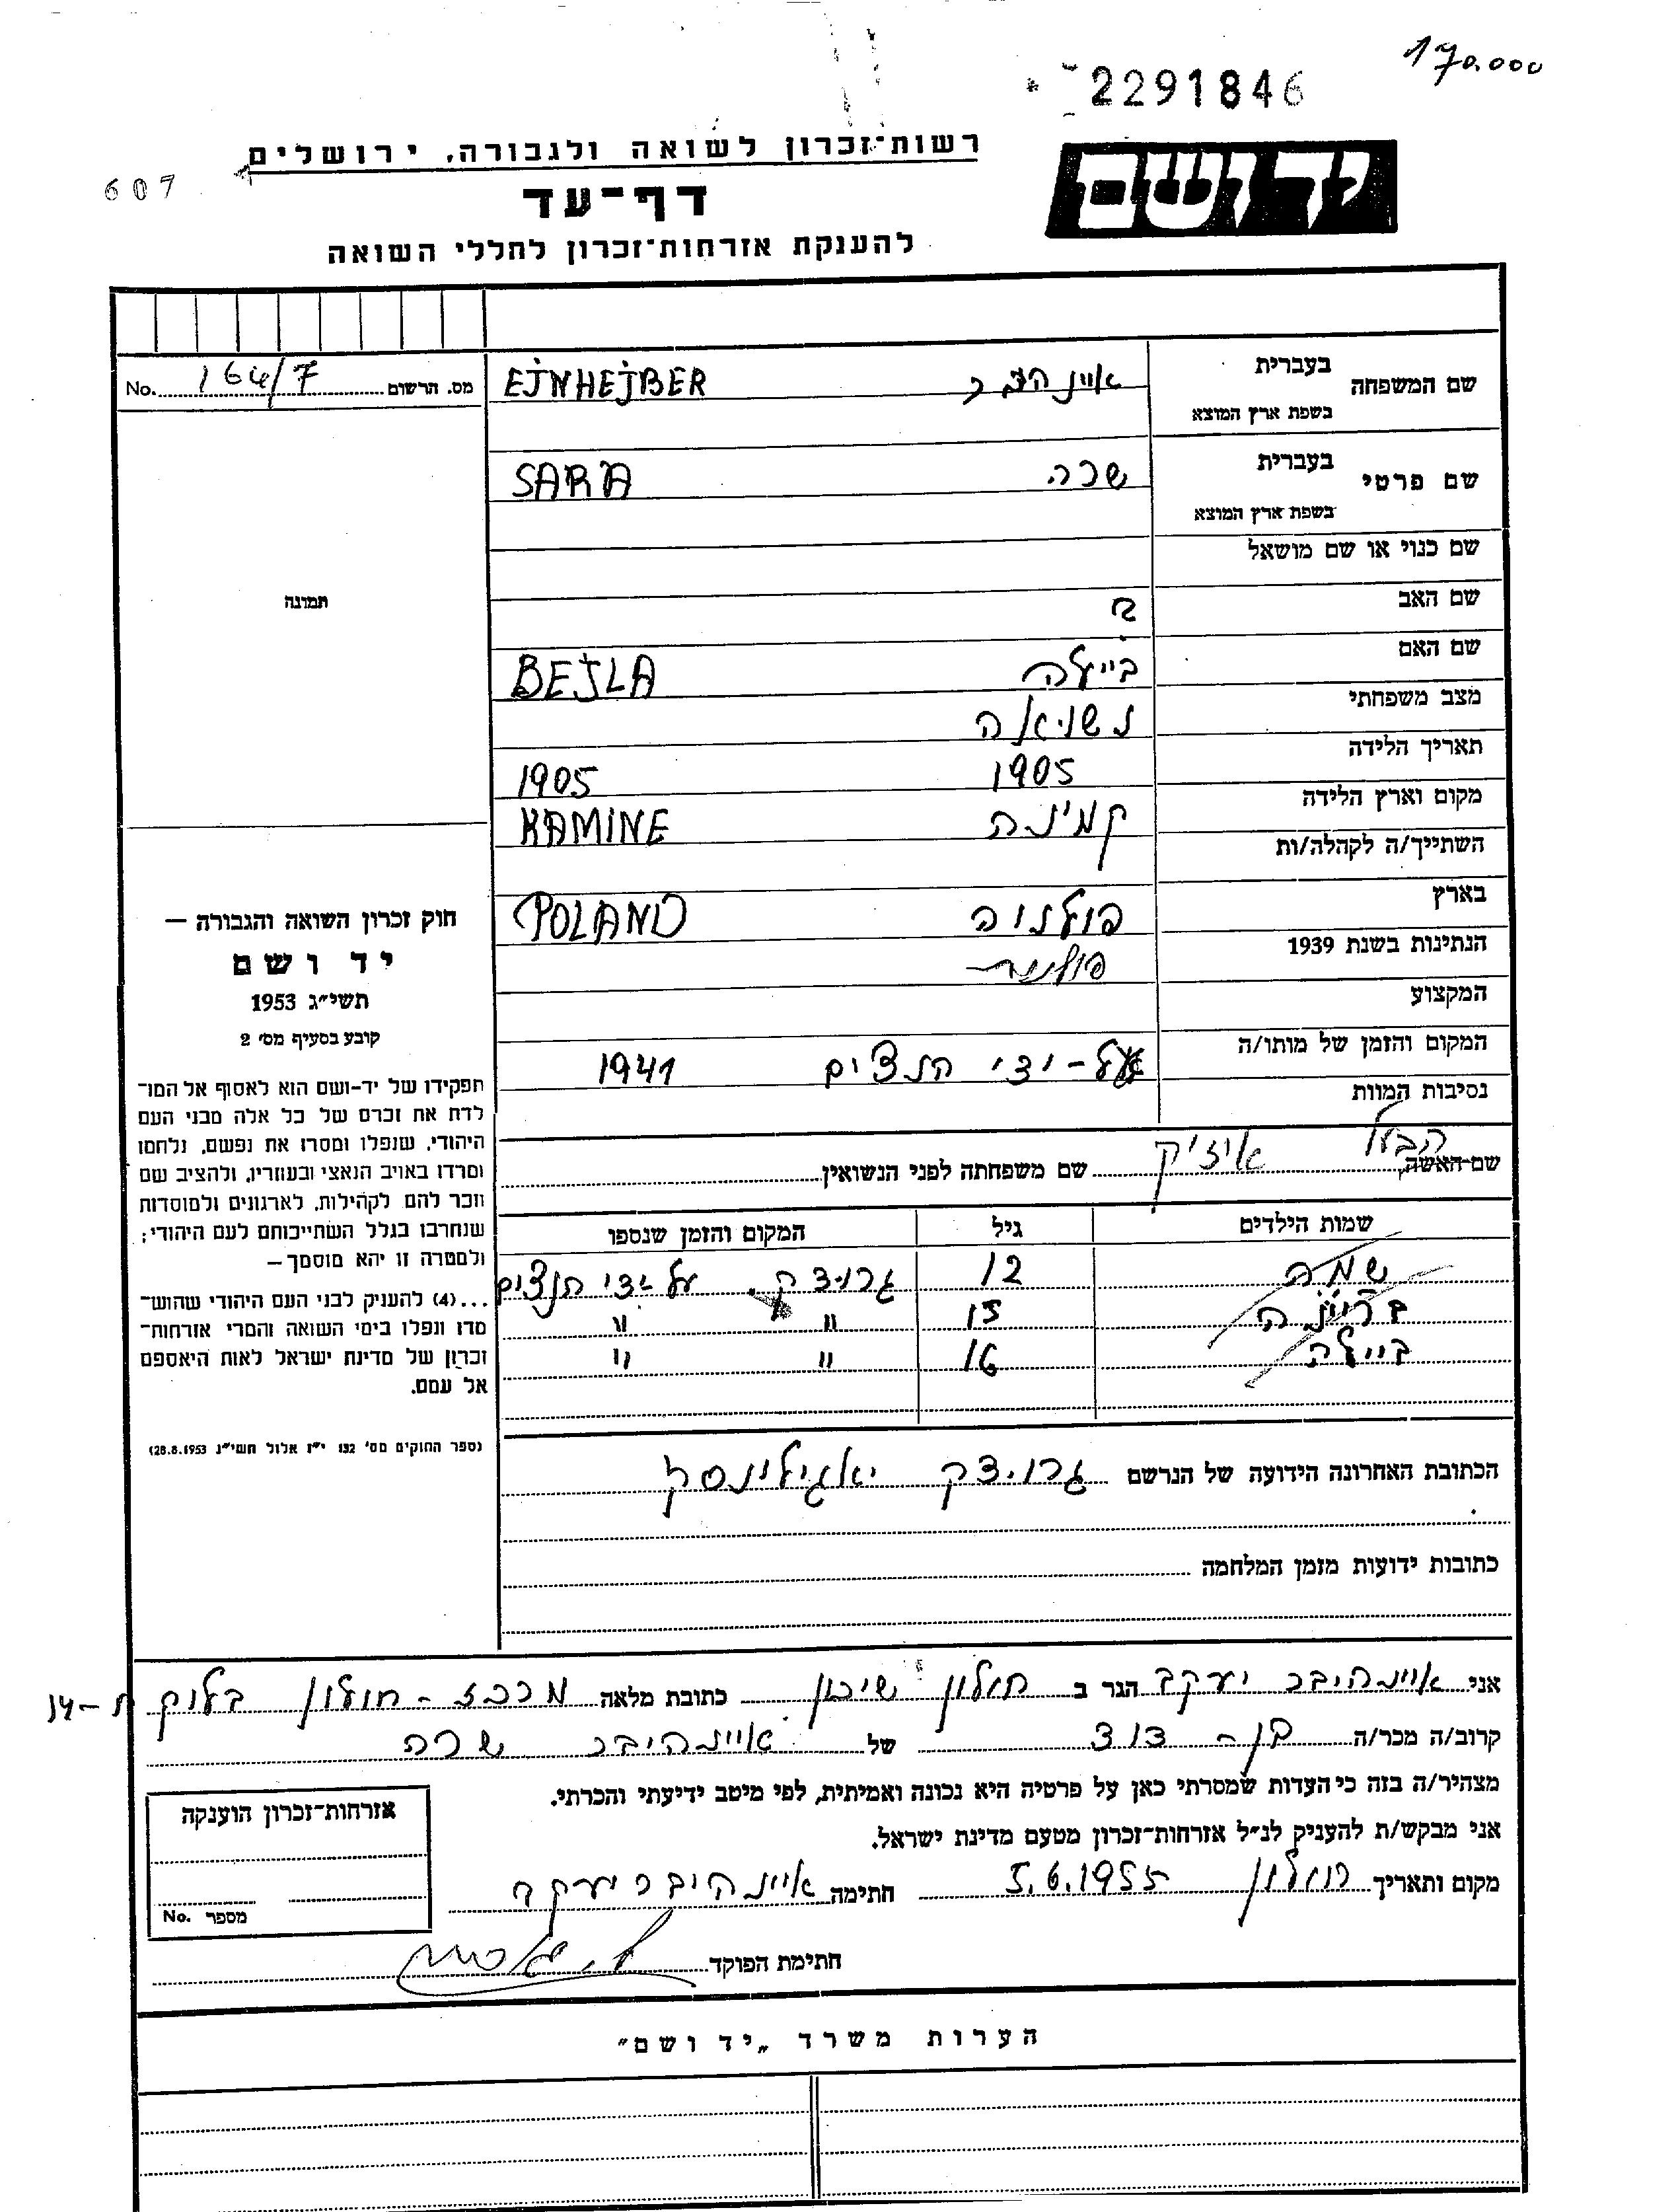 170.000
2291846
יד ושם
רשות־זכרון לשואה ולגבורה, ירושלים
607
דף־עד
להענקת אזרחות־זכרון לחללי השואה
מס. הרשום 164/7 No.
שם המשפחה בעברית
בשפת ארץ המוצא
EJNHEJBER
שם פרטי בעברית שרה SARA
בשפת ארץ המוצא
שם כנוי או שם מושאל
תמונה
שם האב
שם האם ביילה BEJLA
מצב משפחתי נשואה
תאריך הלידה 1905 1905
מקום וארץ הלידה קמינה KAMINE
השתייך/ה לקהלה/ות
בארץ פולניה POLAND
הנתינות בשנת 1939 פולנית
המקצוע
המקום והזמן של מותו/ה על-ידי הנצים 1941
נסיבות המוות
חוק זכרון השואה והגבורה —
יד ושם
תשי״ג 1953
קובע בסעיף מס׳ 2
תפקידו של יד-ושם הוא לאסוף אל המו־
לדת את זכרם של כל אלה מבני העם
היהודי, שנפלו ומסרו את נפשם, נלחמו
ומרדו באויב הנאצי ובעוזריו, ולהציב שם
וזכר להם לקהילות, לארגונים ולמוסדות
שנחרבו בגלל השתייכותם לעם היהודי;
ולמטרה זו יהא מוסמך—
...(4) להעניק לבני העם היהודי שהוש־
מדו ונפלו בימי השואה והמרי אזרחות־
זכרון של מדינת ישראל לאות היאספם
אל עמם.
(ספר החוקים מס׳ 132 י״ז אלול תשי״ג 28.8.1953)
הבעל
שם האשה אייזיק שם משפחתה לפני הנשואין
שמות הילדים גיל המקום והזמן שנספו
12 גרודק. על ידי הנצים
בריינה 15 " "
ביילה 16 " "
הכתובת האחרונה הידועה של הנרשם גרודק יאגילונסקי
כתובות ידועות מזמן המלחמה
אני איינהיבר יעקב הגר ב חולון שיכון כתובת מלאה מרכז - חולון בלוק 14-
קרוב/ה מכר/ה בן-דוד של איינהיבר שרה
מצהיר/ה בזה כי העדות שמסרתי כאן על פרטיה היא נכונה ואמיתית, לפי מיטב ידיעתי והכרתי.
אני מבקש/ת להעניק לנ״ל אזרחות־זכרון מטעם מדינת ישראל.
מקום ותאריך חולון 5.6.1955 חתימה איינהיבר יעקב
חתימת הפוקד
אזרחות־זכרון הוענקה
מספר No.
הערות משרד „יד ושם״